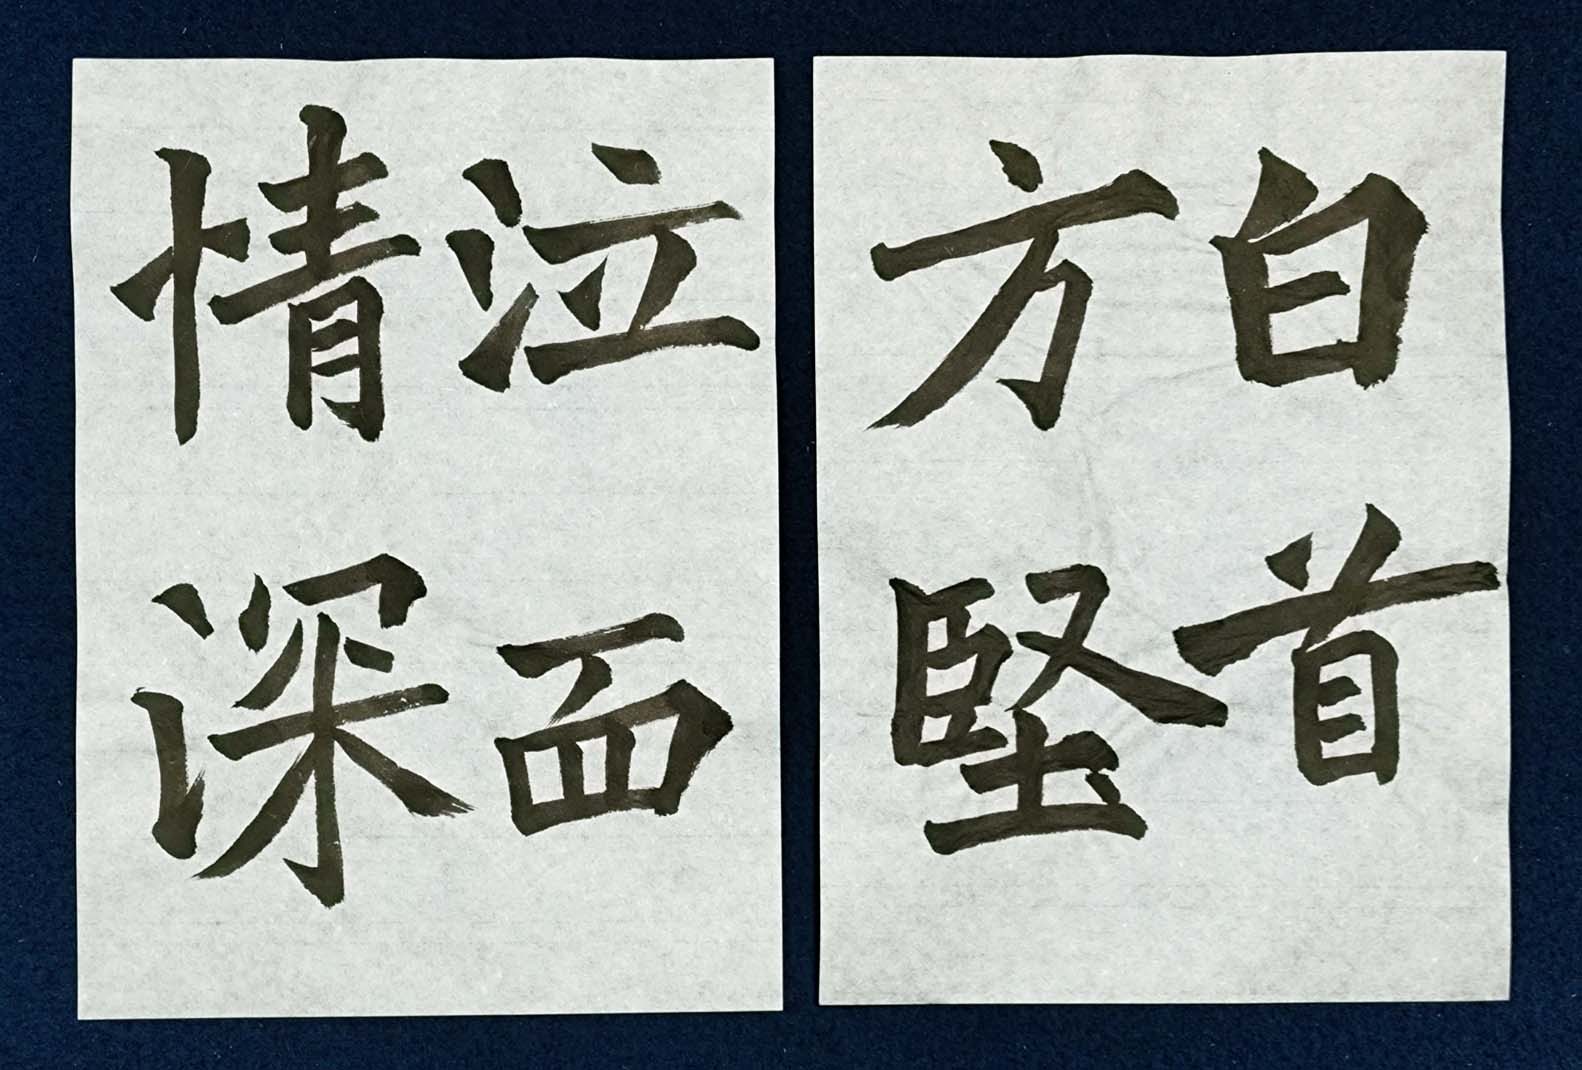 白首
方堅
泣面
情深